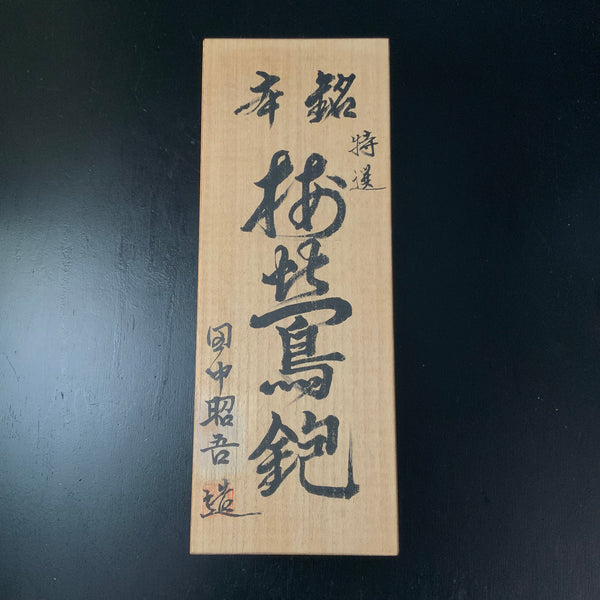 本銘
特選
梅鶯鉋
田中昭吾造